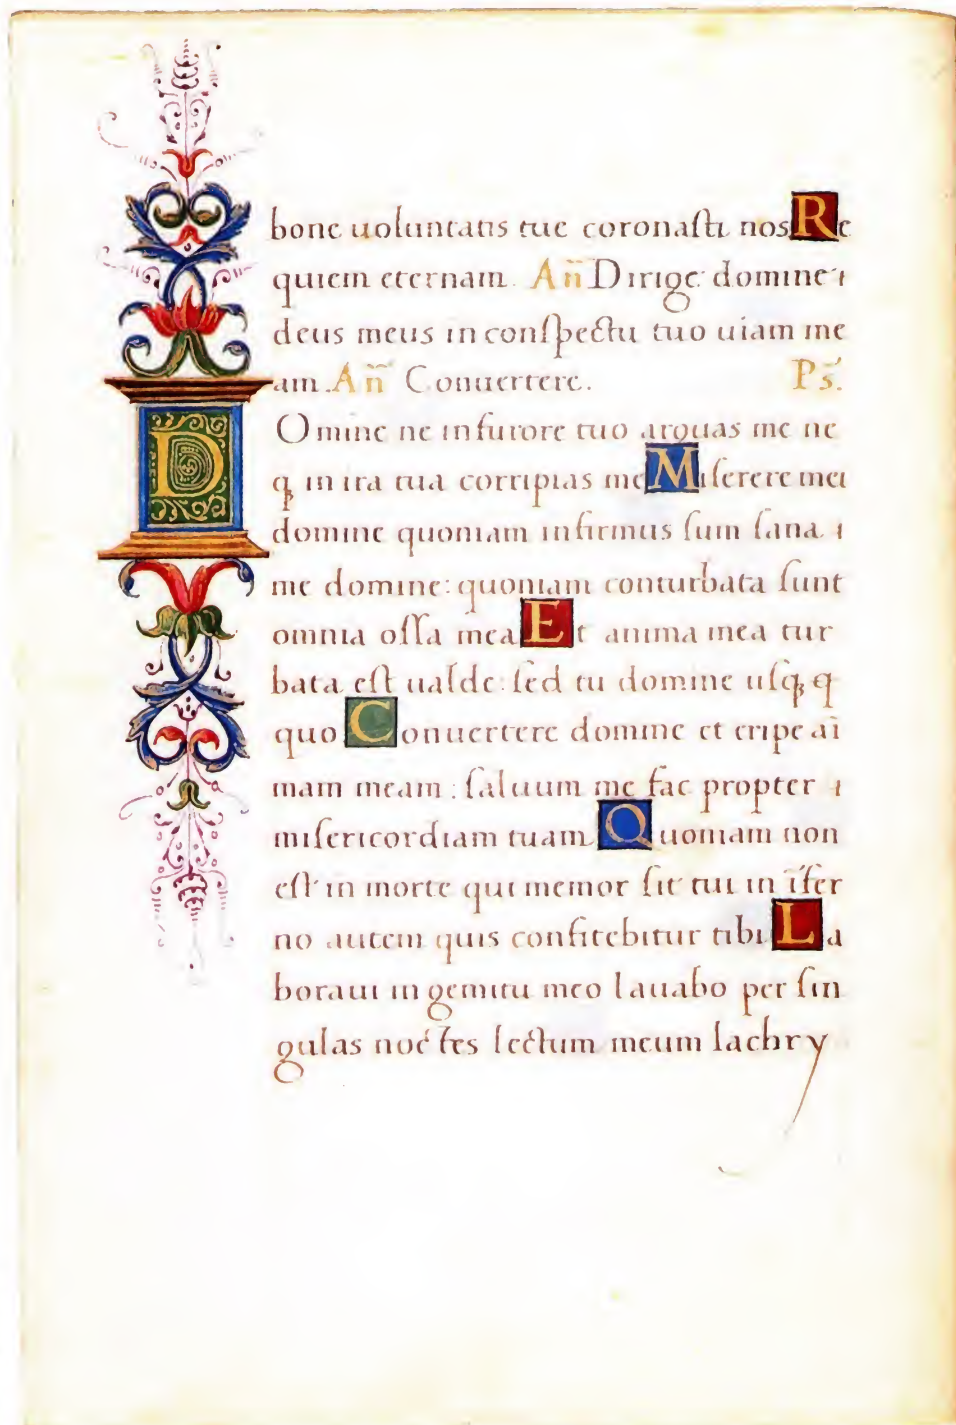 bone uoluntatis tue coronaſti nos Re
quiem eternam. An̄ Dirige domine
deus meus in conſpectu tuo uiam me
am. An̄ Conuertere. Ps̄.
DOmine ne in furore tuo arguas me ne
qꝫ in ira tua corripias me Miſerere mei
domine quoniam infirmus ſum ſana
me domine: quoniam conturbata ſunt
omnia oſſa mea Et anima mea tur
bata eſt ualde: ſed tu domine uſqꝫ q
quo Conuertere domine et eripe ai̅
mam meam: ſaluum me fac propter
miſericordiam tuam Quoniam non
eſt in morte qui memor ſit tui in i̅fer
no autem quis confitebitur tibi La
boraui in gemitu meo lauabo per ſin
gulas noctes lectum meum lachry